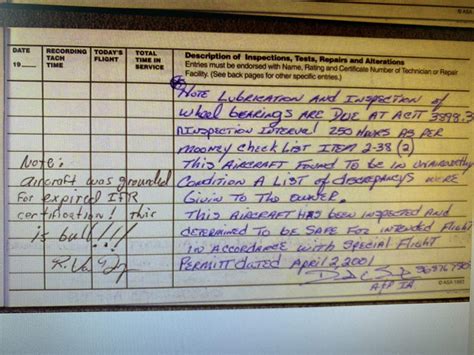 © ASA
DATE
19___
RECORDING
TACH
TIME
TODAY'S
FLIGHT
TOTAL
TIME IN
SERVICE
Description of Inspections, Tests, Repairs and Alterations
Entries must be endorsed with Name, Rating and Certificate Number of Technician or Repair
Facility. (See back pages for other specific entries.)
Note Lubrication and Inspection of
wheel bearings are due at ACTT 3898.3
Inspection Interval 250 Hours as per
Mooney check List Item 2-38 (2)
This Aircraft Found to be in unairworthy
Condition A List of discrepancys were
Givin to The owner.
This Aircraft has been inspected and
determined to be safe for intended Flight
in accordance with special Flight
Permitt dated April 2, 2001
A+P IA
Note:
aircraft was grounded
for expired IFR
certification! This
is bull!!!
© ASA 1993